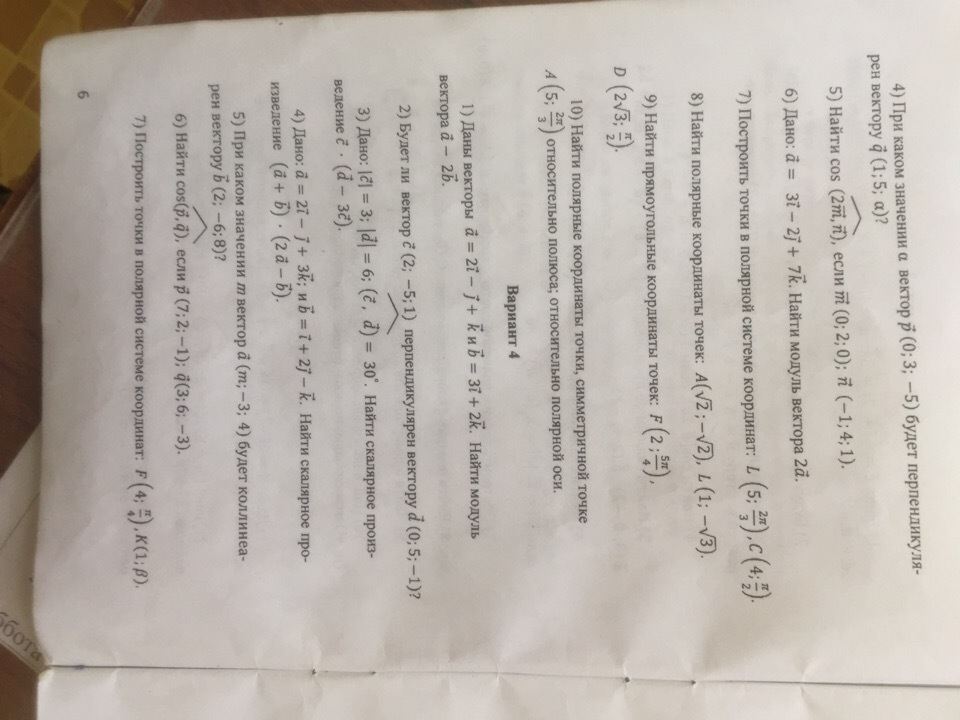 4) При каком значении α вектор p⃗ (0; 3; −5) будет перпендикуля-
рен вектору q⃗ (1; 5; α)?
5) Найти cos (2m⃗, n⃗), если m⃗ (0; 2; 0); n⃗ (−1; 4; 1).
6) Дано: a⃗ = 3i⃗ − 2j⃗ + 7k⃗. Найти модуль вектора 2a⃗.
7) Построить точки в полярной системе координат: L (5; 2π/3), C (4; π/2).
8) Найти полярные координаты точек: A(√2; −√2), L (1; −√3).
9) Найти прямоугольные координаты точек: F (2; 5π/4),
D (2√3; π/2).
10) Найти полярные координаты точки, симметричной точке
A (5; 2π/3) относительно полюса; относительно полярной оси.
Вариант 4
1) Даны векторы a⃗ = 2i⃗ − j⃗ + k⃗ и b⃗ = 3i⃗ + 2k⃗. Найти модуль
вектора a⃗ − 2b⃗.
2) Будет ли вектор c⃗ (2; −5; 1) перпендикулярен вектору d⃗ (0; 5; −1)?
3) Дано: |c⃗| = 3; |d⃗| = 6; (c⃗, d⃗) = 30°. Найти скалярное произ-
ведение c⃗ · (d⃗ − 3c⃗).
4) Дано: a⃗ = 2i⃗ − j⃗ + 3k⃗; и b⃗ = i⃗ + 2j⃗ − k⃗. Найти скалярное про-
изведение (a⃗ + b⃗) · (2a⃗ − b⃗).
5) При каком значении m вектор a⃗ (m; −3; 4) будет коллинеа-
рен вектору b⃗ (2; −6; 8)?
6) Найти cos(p⃗, q⃗), если p⃗ (7; 2; −1); q⃗(3; 6; −3).
7) Построить точки в полярной системе координат: F (4; π/4), K(1; β).
6
ббота